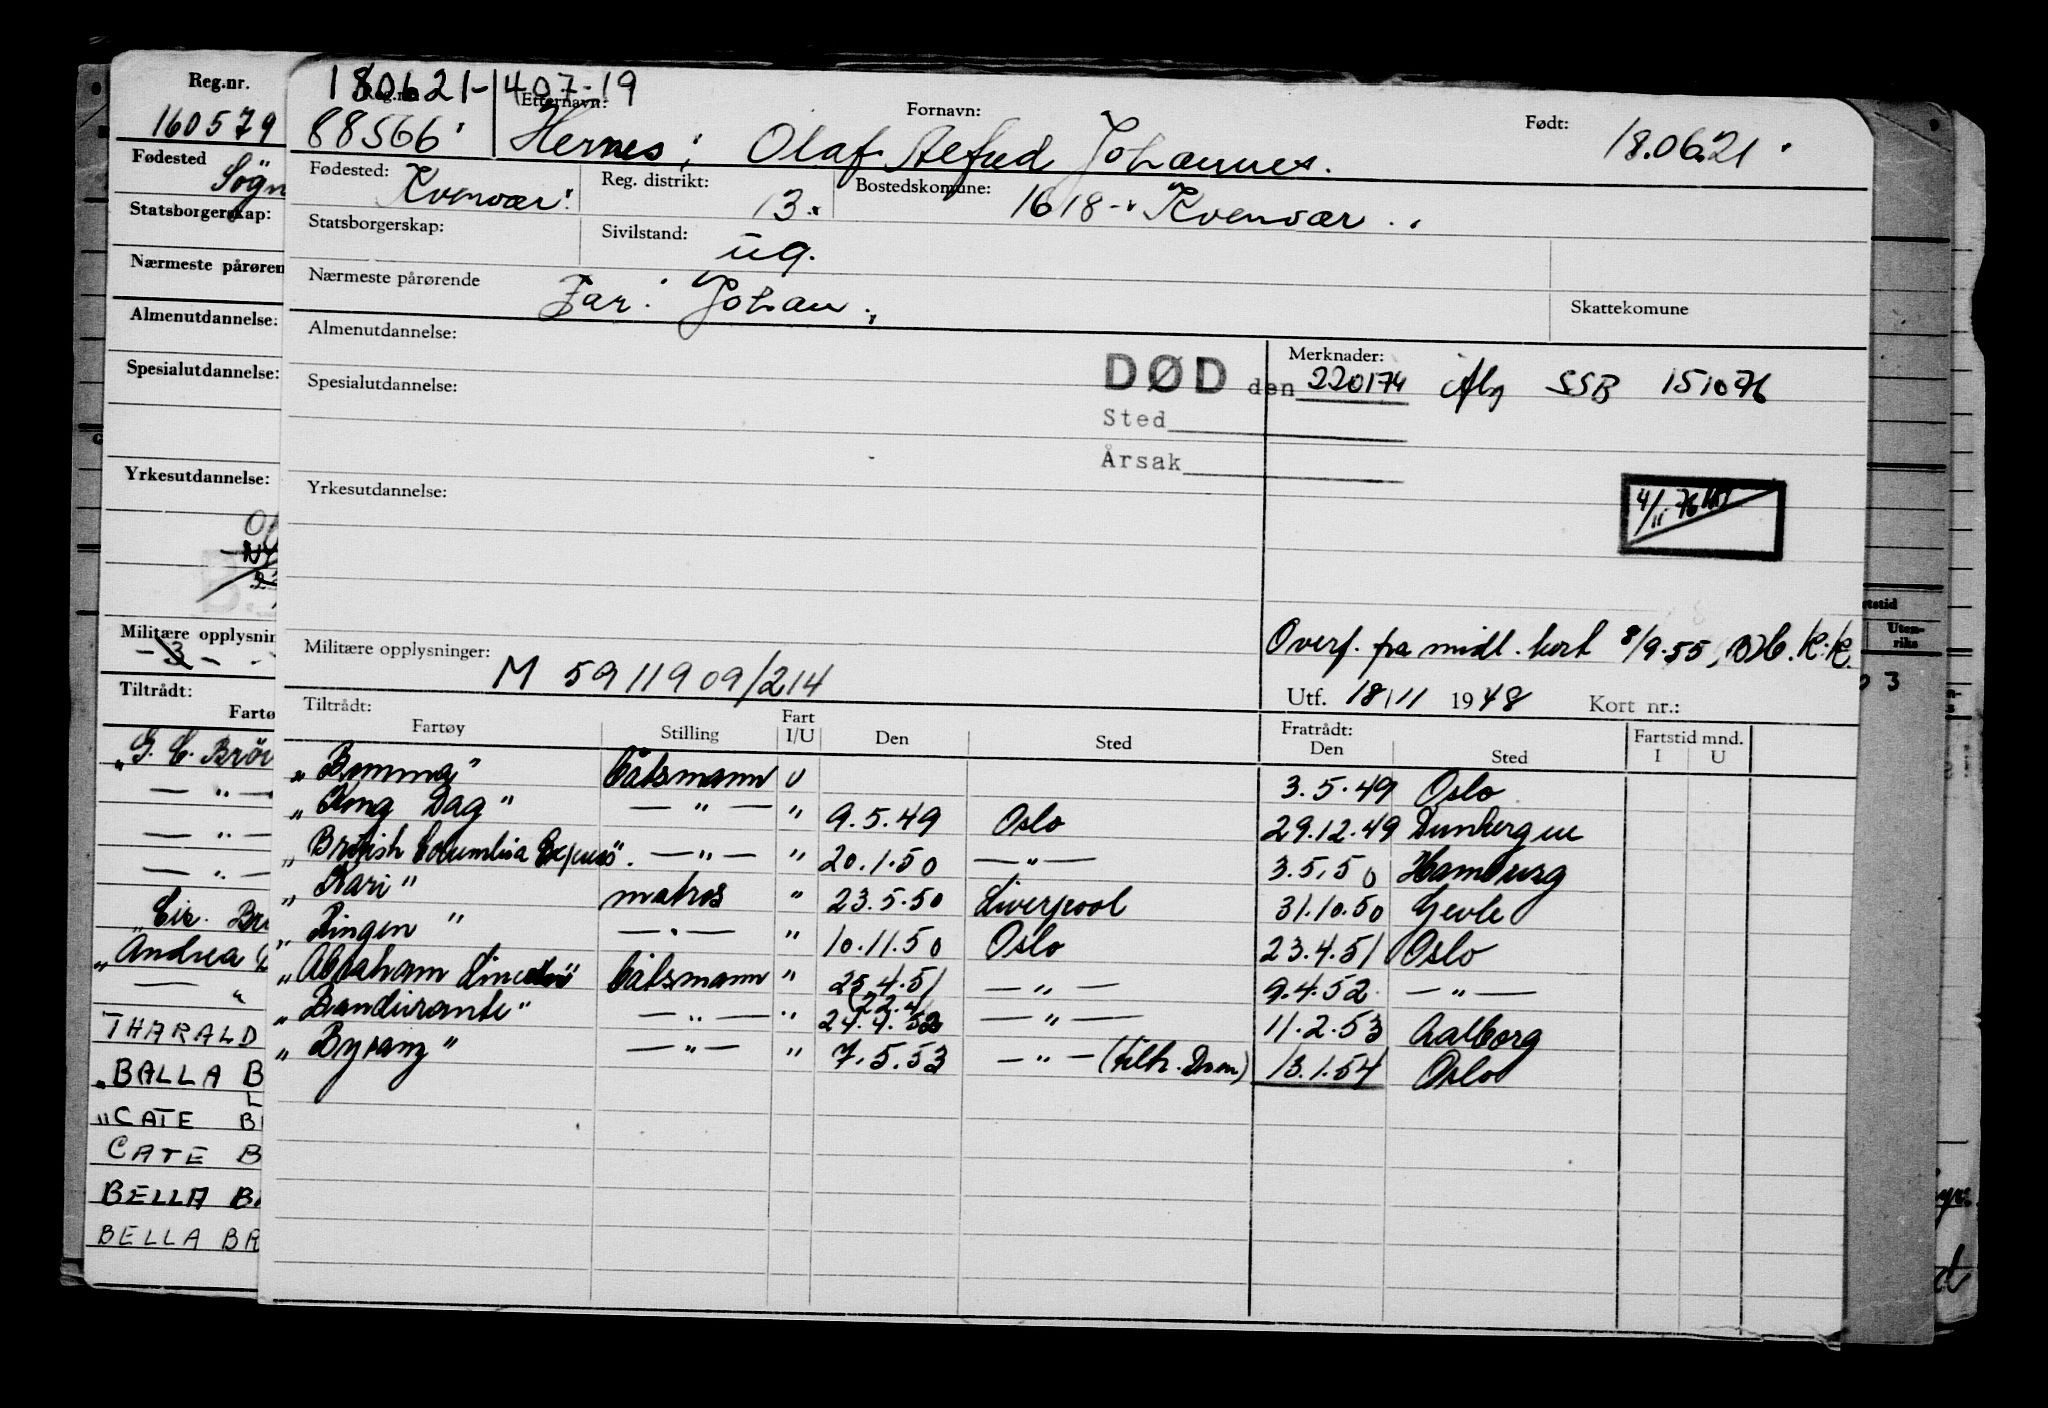 180621-407-19
Reg.nr. Etternavn: Fornavn: Født:
88566 Hernes, Olaf Alfred Johannes. 18.06.21
Fødested: Kvenvær Reg. distrikt: 13. Bostedskomune: 1618 - Kvenvær
Statsborgerskap: Sivilstand: ug.
Nærmeste pårørende Far: Johan Skattekomune
Almenutdannelse: Merknader:
DØD den 220174 SSB 151076
Spesialutdannelse:
Sted
Årsak
Yrkesutdannelse: 4/11 76
Overf. fra midl. kort 8/9-55,
Militære opplysninger: M 5911909/214
Utf. 18/11 1948 Kort nr.:
Tiltrådt: Fratrådt: Fartstid mnd.
Fartøy Stilling Fart I/U Den Sted Den Sted I U
"Bomma" Båtsmann U 3.5.49 Oslo
"King Dag" — " — " 9.5.49 Oslo 29.12.49 Dunkerque
"British Columbia Express". — " — " 20.1.50 — " — 3.5.50 Hamburg
"Kari" matros " 23.5.50 Liverpool 31.10.50 Gevle
"Ringen" — " — " 10.11.50 Oslo 23.4.51 Oslo
"Abraham Lincoln" Båtsmann " 25.4.51 — " — 9.4.52 — " —
"Bandeirante" — " — " — " — 11.2.53 Aalborg
— " — " 7.5.53 — " — (tilh. Dram) 13.1.54 Oslo
Reg.nr.
160579
Fødested
Søgn
Statsborgerskap:
Nærmeste pårøren
Almenutdannelse:
Spesialutdannelse:
Yrkesutdannelse:
Militære opplysnin
- 3 -
Tiltrådt:
Fartø
"G. C. Brøv
— " —
— " —
— " —
"Andrea
— "
THARALD
"BALLA B
"CATE B
CATE B
BELLA BR
BELLA BR
Uten-
riks
3